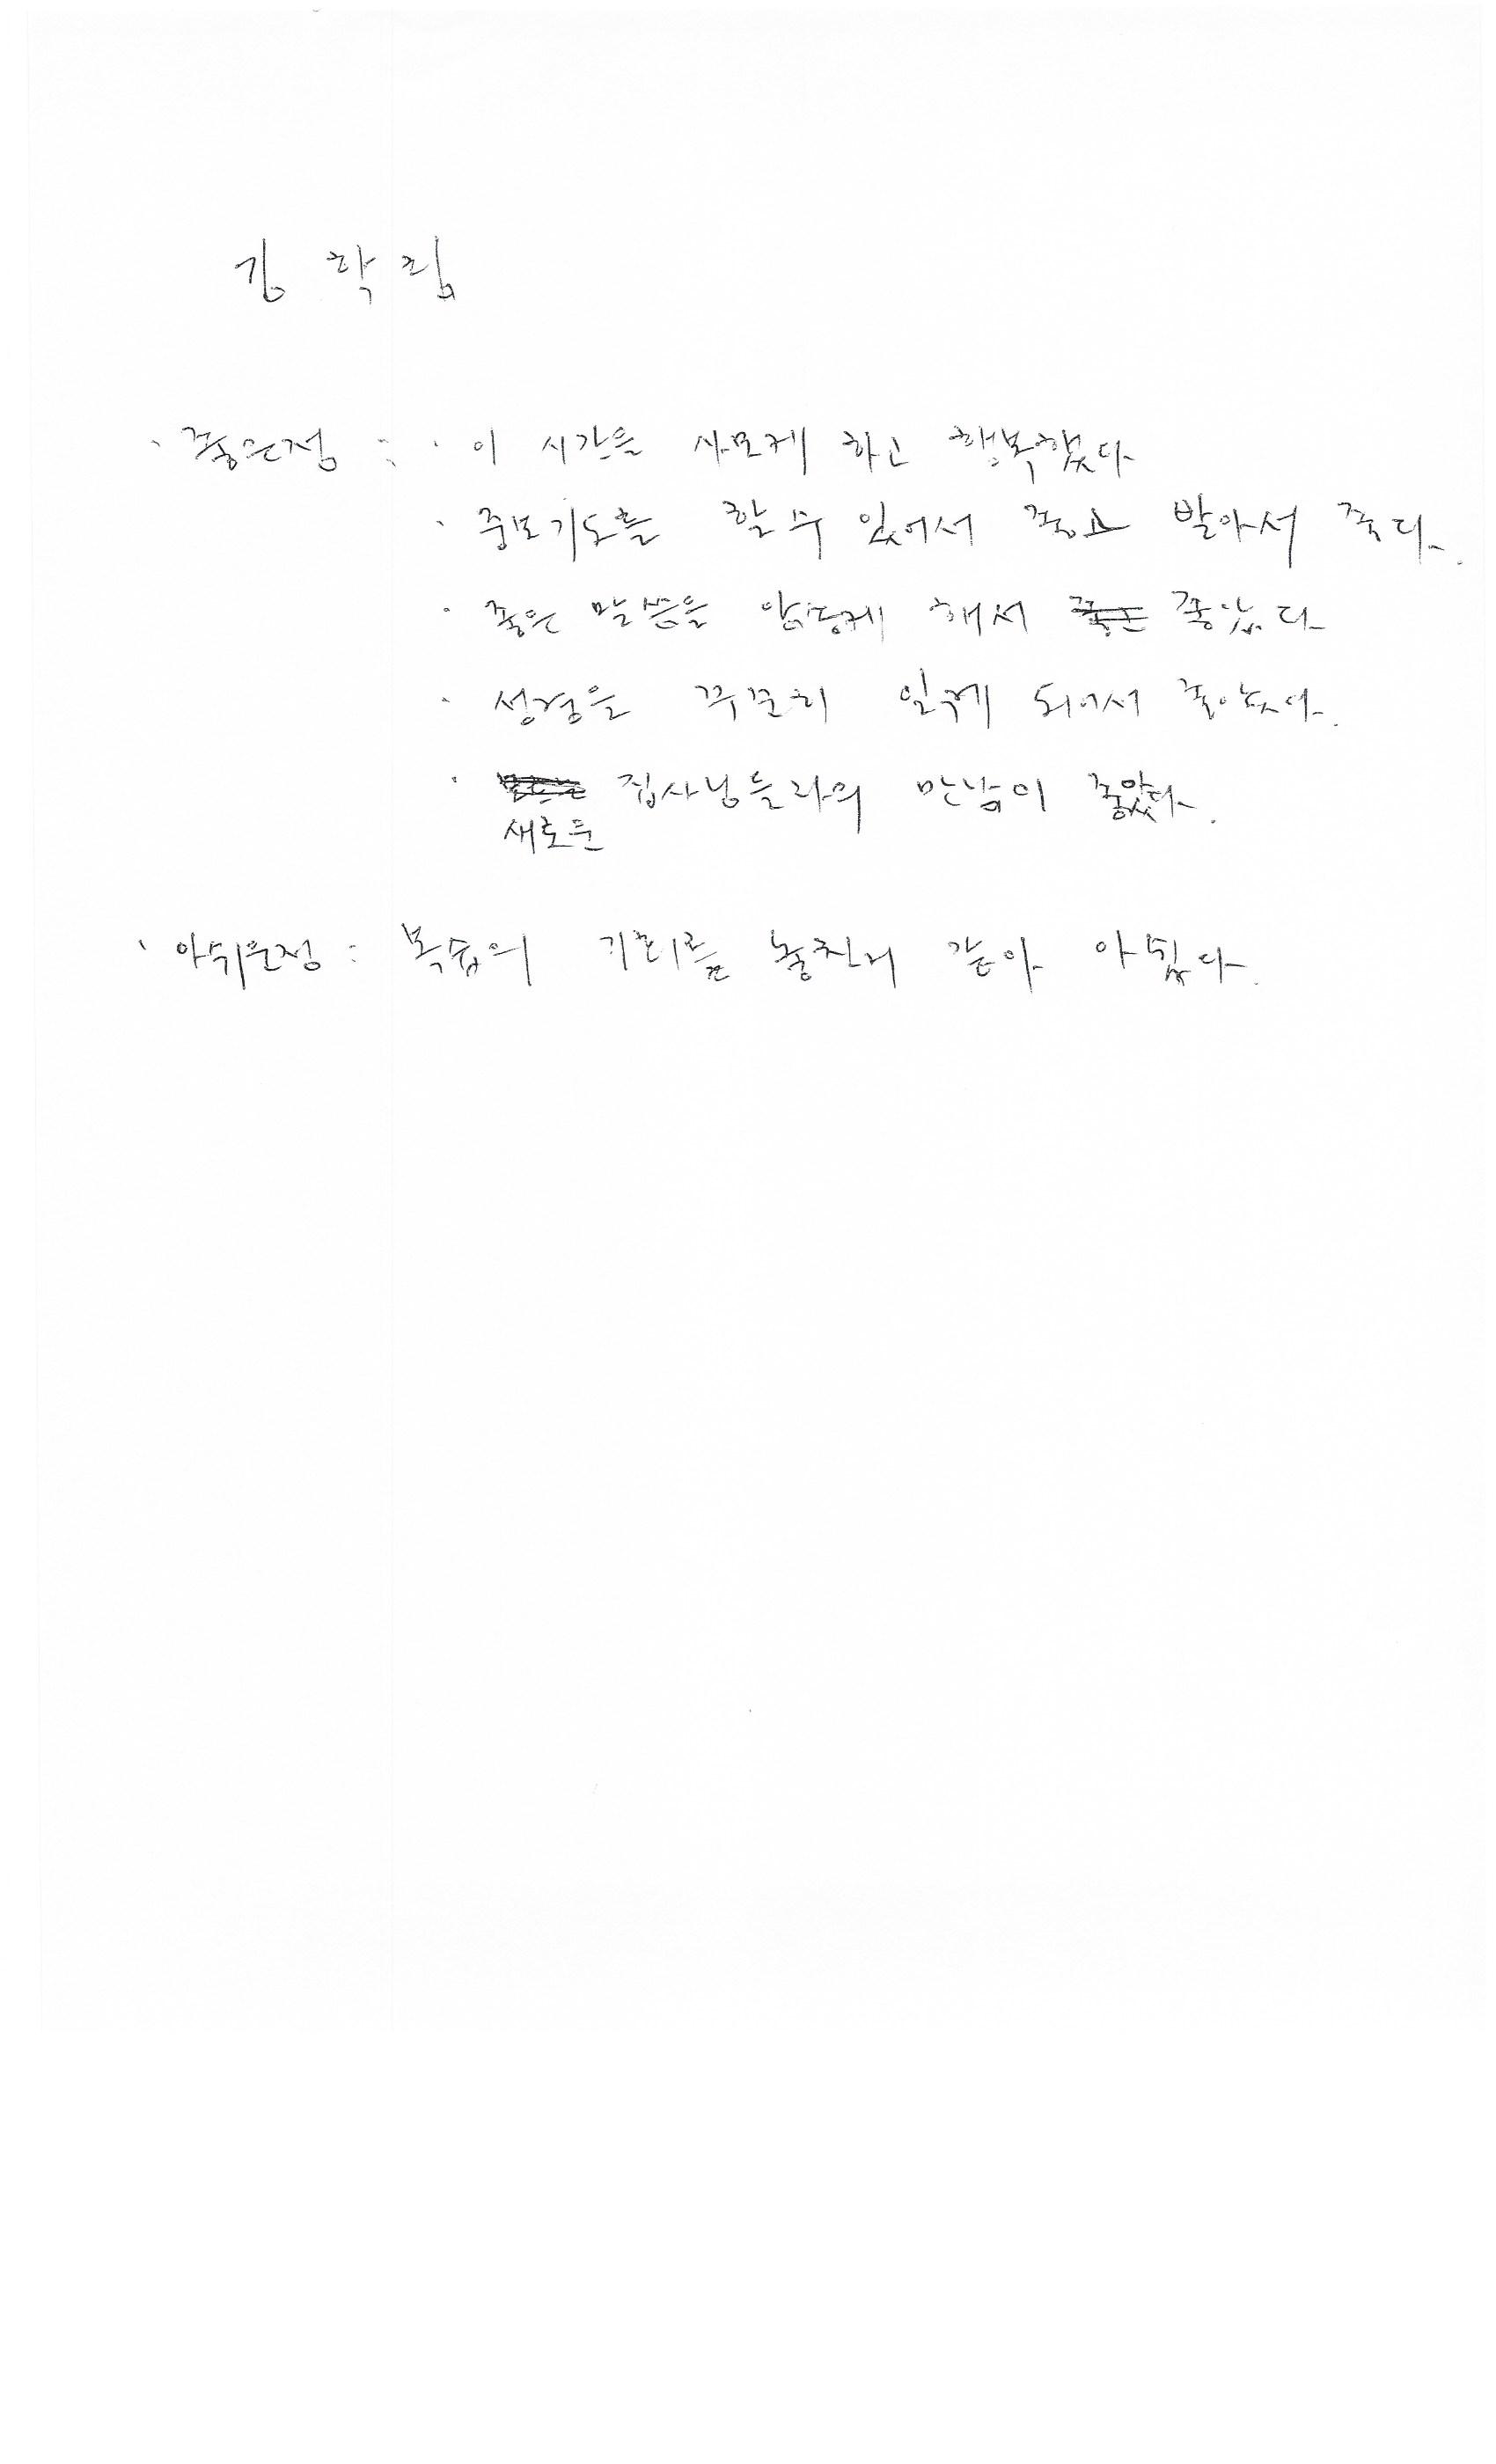 김 학 림
· 좋은점 : · 이 시간을 사모케 하고 행복했다
· 중보기도를 할 수 있어서 좋고 받아서 좋다.
· 좋은 말씀을 암송케 해서 좋았다
· 성경을 꾸준히 읽게 되어서 좋았다.
· 집사님들과의 만남이 좋았다.
새로운
· 아쉬운점 : 복습의 기회를 놓친거 같아 아쉽다.